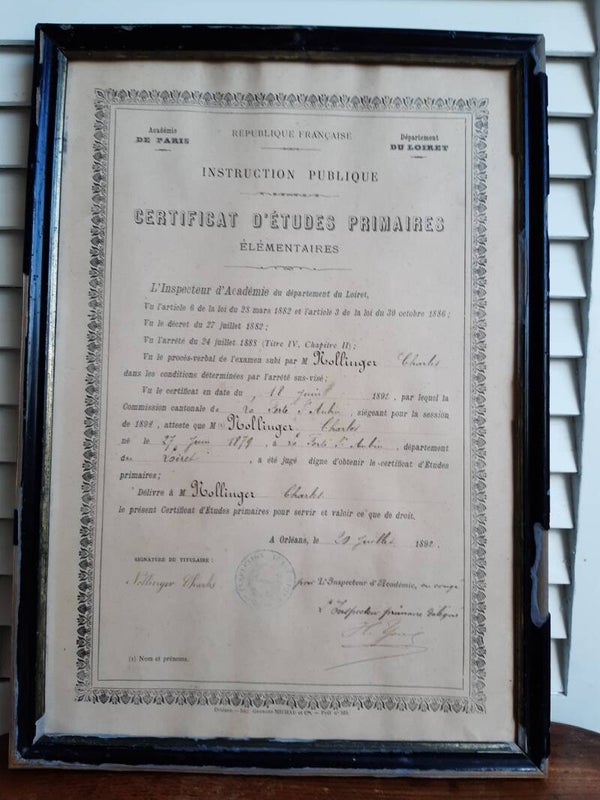 Académie
DE PARIS
RÉPUBLIQUE FRANÇAISE
Département
DU LOIRET
INSTRUCTION PUBLIQUE
CERTIFICAT D'ÉTUDES PRIMAIRES
ÉLÉMENTAIRES
L'Inspecteur d'Académie du département du Loiret,
Vu l'article 6 de la loi du 28 mars 1882 et l'article 3 de la loi du 30 octobre 1886;
Vu le décret du 27 juillet 1882;
Vu l'arrêté du 24 juillet 1888 (Titre IV, Chapitre II);
Vu le procès-verbal de l'examen subi par M Nollinger Charles
dans les conditions déterminées par l'arrêté sus-visé;
Vu le certificat en date du 1892, par lequel la
Commission cantonale de La Ferté St Aubin, siégeant pour la session
de 1892, atteste que M Nollinger Charles
né le 27 Juin 1879, à La Ferté St Aubin, département
du Loiret, a été jugé digne d'obtenir le certificat d'Études
primaires;
Délivre à M Nollinger Charles
le présent Certificat d'Études primaires pour servir et valoir ce que de droit.
A Orléans, le 20 Juillet 1892.
SIGNATURE DU TITULAIRE :
Nollinger Charles
pour L'Inspecteur d'Académie, en congé
L'Inspecteur primaire délégué
(1) Nom et prénoms.
Orléans. — Imp. Georges MICHAU et Cie.